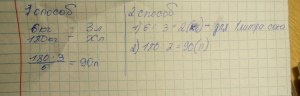 1 способ
6кг = 3л
180кг = Xл
180·3
6
= 90л
2 способ
1) 6:3=2(кг) - для 1 литра сока
2) 180:2=90(л)